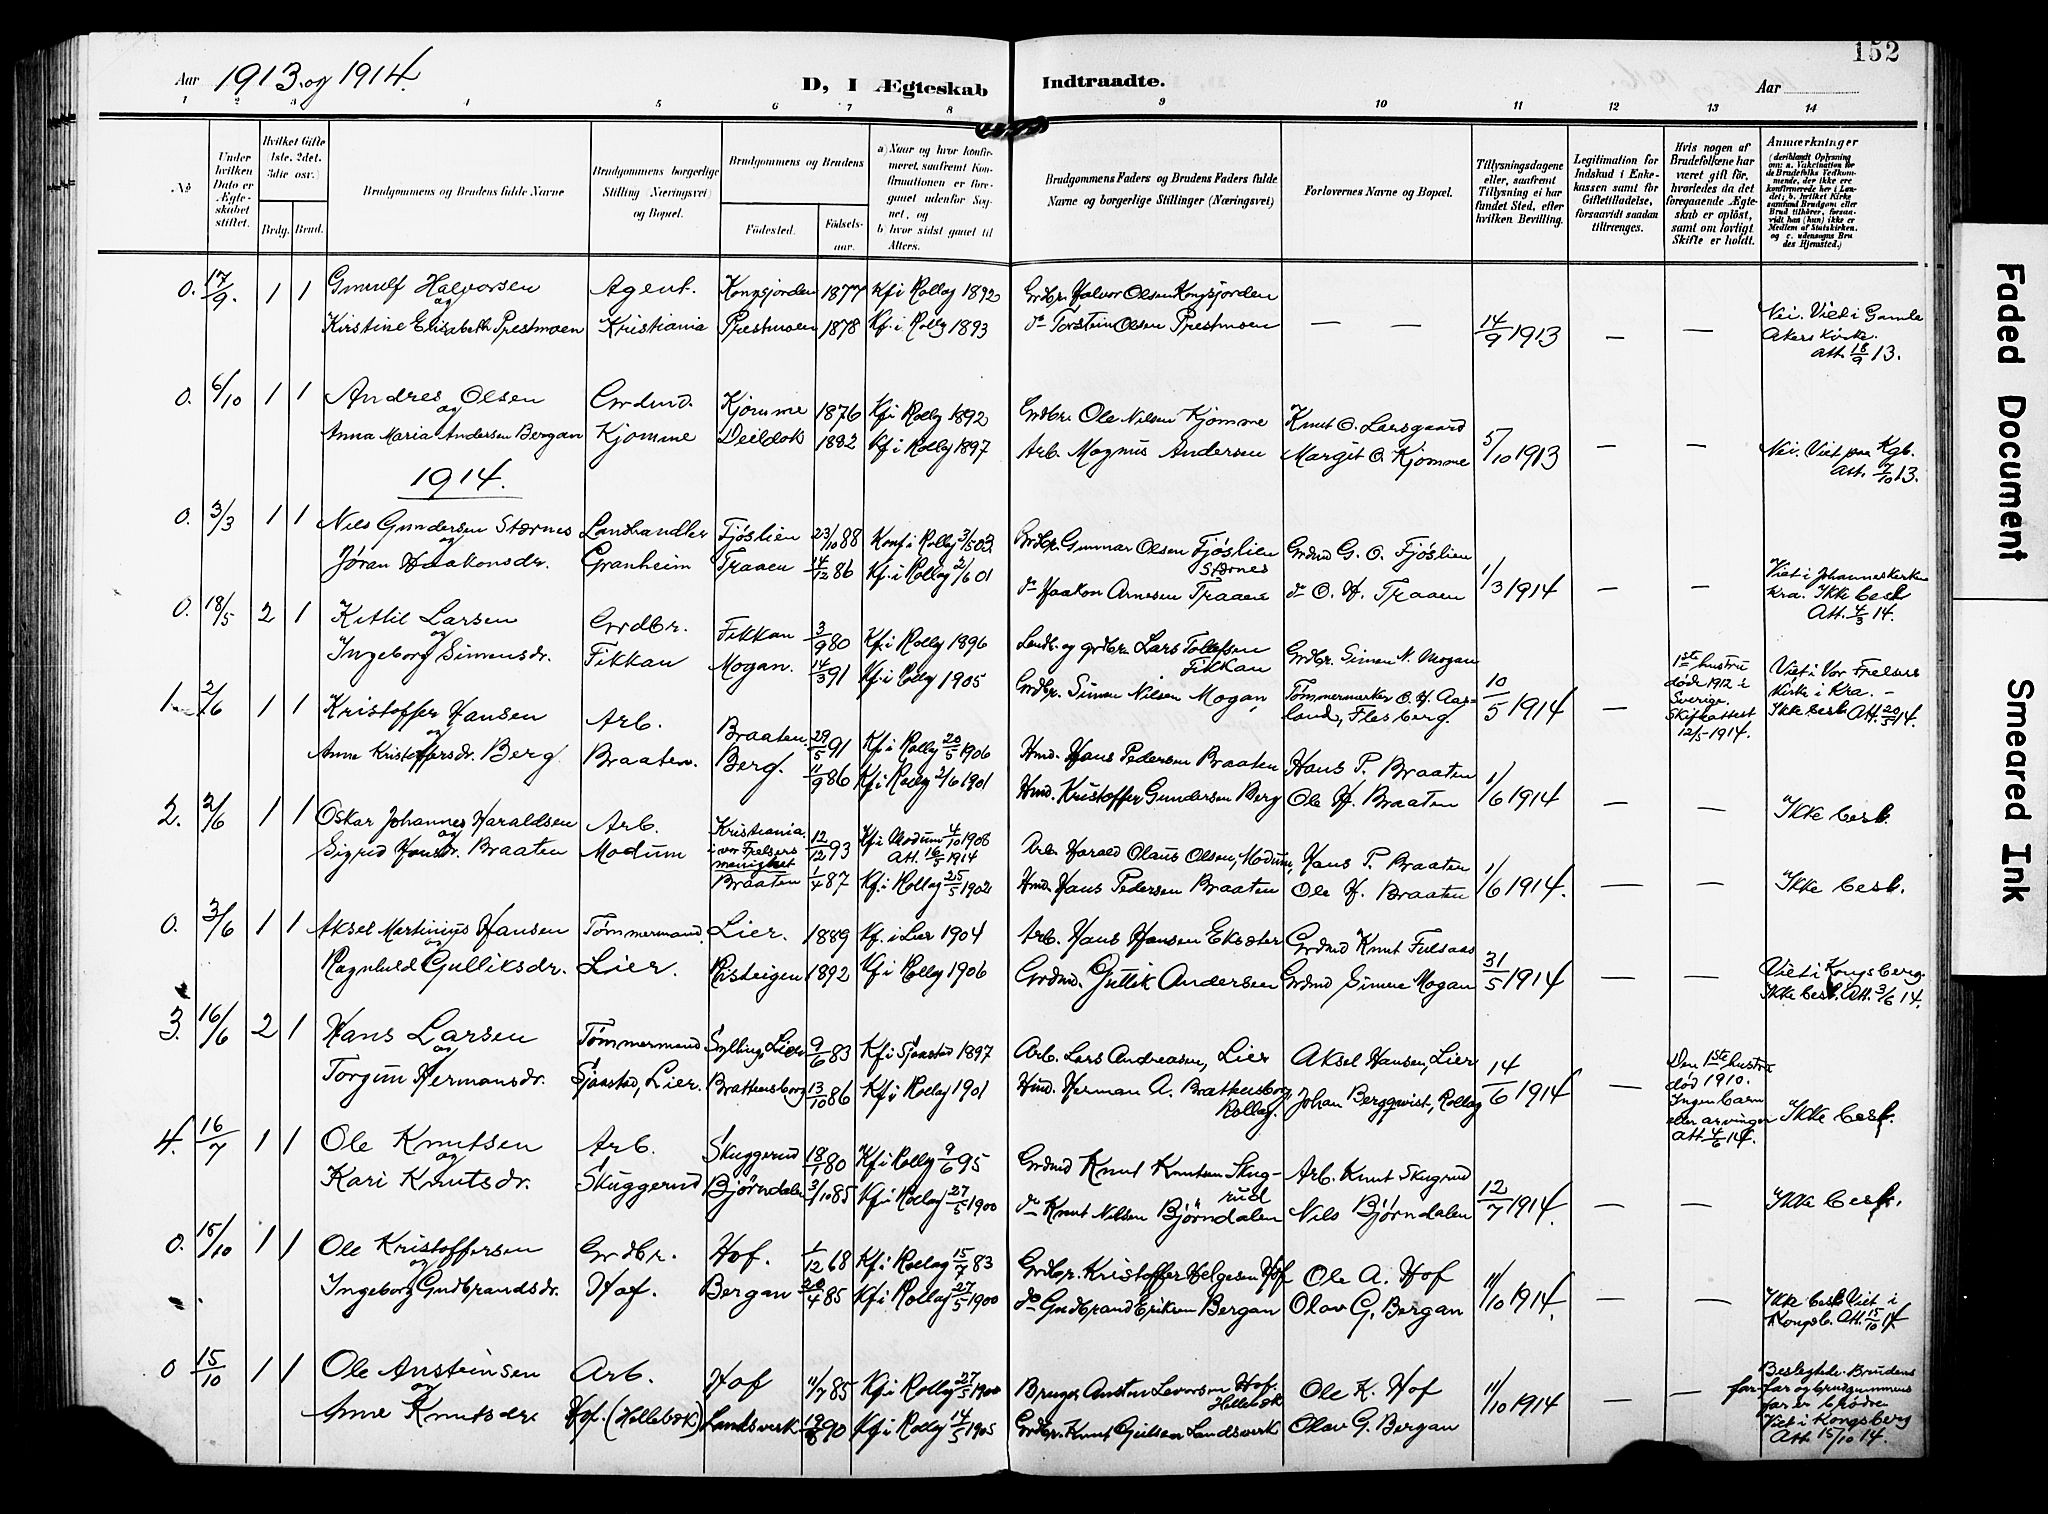 152
Aar 1913 og 1914.
D, I Ægteskab Indtraadte.
Aar
1 2 3 4 5 6 7 8 9 10 11 12 13 14
No
Under hvilken Dato er Ægteskabet stiftet.
Hvilket Gifte (1ste, 2det, 3die osv.)
Brdg. Brud.
Brudgommens og Brudens fulde Navne
Brudgommens borgerlige Stilling (Næringsvei) og Bopæl.
Brudgommens og Brudens
Fødested.
Fødselsaar.
a) Naar og hvor konfirmeret, saafremt Konfirmationen er foregaaet udenfor Sognet, og
b hvor sidst gaaet til Alters.
Brudgommens Faders og Brudens Faders fulde Navne og borgerlige Stillinger (Næringsvei)
Forlovernes Navne og Bopæl.
Tillysningsdagene eller, saafremt Tillysning ei har fundet Sted, efter hvilken Bevilling.
Legitimation for Indskud i Enkekassen samt for Giftetilladelse, forsaavidt saadan tiltrænges.
Hvis nogen af Brudefolkene har været gift før, hvorledes da det foregaaende Ægteskab er opløst, samt om lovligt Skifte er holdt.
Anmærkninger (deriblandt Oplysning om: a. Vakcination for de Brudefolks Vedkommende, der ikke ere konfirmerede her i Landet; b. hvilket Kirkesamfund Brudgom eller Brud tilhører, forsaavidt han (hun) ikke er Medlem af Statskirken, og c. udensogns Brudes Hjemsted.)
0. 17/9. 1 1 Gunulf Halvorsen Agent. Kongsjorden 1877 Kf i Rollag 1892 Grdbr. Halvor Olsen Kongsjorden
og
Kirstine Elisabeth Prestmoen Kristiania Prestmoen 1878 Kf. i Rollag 1893 do Torstein Olsen Prestmoen — — 14/9 1913 — — Nei. Viet i Gamle Akers Kirke. Att. 18/9 13.
0. 6/10 1 1 Andres Olsen Grdmd. Kjomme 1876 Kf i Rollag 1892 Grdbr. Ole Nilsen Kjomme Knut O. Larsgaard
og
Anna Maria Andersen Bergan Kjomme Deildok 1882 Kf i Rollag 1897 Arb. Magnus Andersen Margit O. Kjomme 5/10 1913 — — Nei. Viet paa Kgb. Att. 7/10 13.
1914.
0. 3/3 1 1 Nils Gundersen Stærnes Landhandler Fjøslien 23/10 88 Konf i Rollag 3/5 03 Grdbr. Gunnar Olsen Fjøslien Stærnes Grdmd G. O. Fjøslien
og
Jøran Haakonsdr. Granheim Traaen 14/12 86 Kf. i Rollag 2/6 01 do Haakon Arnesen Traaen do O. H. Traaen 1/3 1914 — — Viet i Johanneskirken Kra. Ikke besl. Att. 4/3 14.
0. 18/5 2 1 Kittil Larsen Grdbr. Fikkan 3/9 80 Kf i Rollag 1896 Landh. og grdbr. Lars Tollefsen Fikkan Grdbr. Simen N. Mogan
og
Ingeborg Simensdr. Fikkan Mogan. 14/3 91 Kf. i Rollag 1905 Grdbr. Simen Nilsen Mogan, Tømmermerker O. H. Aasland, Flesberg. 10/5 1914 — 1ste hustru døde 1912 i Sverige. Skifteattest 12/5-1914. Viet i Vor Frelsers Kirke i Kra. — Ikke besl. Att. 20/5 14.
1. 2/6 1 1 Kristoffer Hansen Arb. Braaten 29/5 91 Kf i Rollag 20/5 1906 Hmd. Hans Pedersen Braaten Hans P. Braaten
og
Anne Kristoffersdr. Berg Braaten. Berg. 11/9 86 Kf i Rollag 2/6 1901 Hmd. Kristoffer Gundersen Berg Ole H. Braaten 1/6 1914 — — Ikke besl.
2. 2/6 1 1 Oskar Johannes Haraldsen Arb. Kristiania i vor Frelsers menighet 12/12 93 Kf i Modum 4/10 1908 Att. 16/5 1914 Arb. Harald Olaus Olsen, Modum, Hans P. Braaten
og
Sigrid Hansdr. Braaten Modum Braaten 1/4 87 Kf. i Rollag 25/5 1902 Hmd. Hans Pedersen Braaten Ole H. Braaten 1/6 1914. — — Ikke besl.
0. 3/6 1 1 Aksel Martinius Hansen Tømmermand Lier. 1889 Kf. i Lier 1904 Arb. Hans Hansen Eksæter Grdmd Knut Fulsaas
og
Ragnhild Gulliksdr. Lier. Risteigen 1892 Kf i Rollag 1906 Grdmd. Gullik Andersen Grdmd Simen Mogan 31/5 1914 — — Viet i Kongsberg. Ikke besl. Att. 3/6 14.
3. 16/6 2 1 Hans Larsen Tømmermand Sylling, Lier 9/6 83 Kf i Sjaastad 1897 Arb. Lars Andreasen, Lier Aksel Hansen, Lier
og
Torgun Hermansdr. Sjaastad, Lier. Brathensborg 13/10 86 Kf i Rollag 1901 Hmd. Herman A. Brathensborg, Rollag. Johan Bergqwist, Rollag 14/6 1914 — Den 1ste hustru død 1910. Ingen barn eller arvinger Att. 4/6 14. Ikke besl.
4. 16/7 1 1 Ole Knutsen Arb. Skuggerud 18/1 80 Kf i Rollag 9/6 95 Grdmd Knut Knutsen Skugrud Arb. Knut Skugrud
og
Kari Knutsdr. Skuggerud Bjørndalen 3/10 85 Kf i Rollag 27/5 1900 do Knut Nilsen Bjørndalen Nils Bjørndalen 12/7 1914. — — Ikke besl.
0. 15/10 1 1 Ole Kristoffersen Grdbr. Hof. 1/12 68 Kf i Rollag 15/7 83 Grdbr. Kristoffer Helgesen Hof Ole A. Hof
og
Ingeborg Gudbrandsdr. Hof. Bergan 20/4 85 Kf i Rollag 27/5 1900 do Gudbrand Eriksen Bergan Olav G. Bergan 11/10 1914. Ikke besl. Viet i Kongsb. Att. 15/10 14
0 15/10 1 1 Ole Ansteinsen Arb. Hof 11/7 85 Kf i Rollag 27/5 1900 Bruger Ansten Levorsen Hof. Hellebæk Ole K. Hof
og
Anne Knutsdr. Hof. (Hellebæk) Landsverk 90 Kf i Rollag 14/5 1905 Grdbr. Knut Gulsen Landsverk Olav G. Bergan 11/10 1914 — — Beslegtede. Brudens farfar og brudgommens far er brødre Viet i Kongsberg Att. 15/10 14.
Faded Document
Smeared Ink